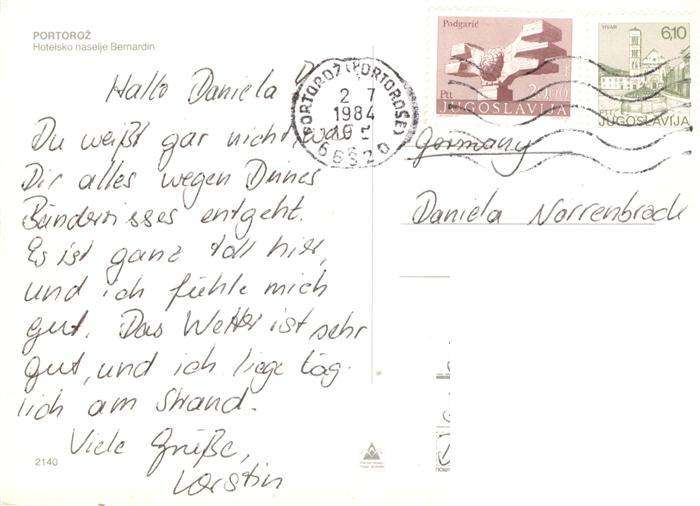 PORTOROŽ
Hotelsko naselje Bernardin
Hallo Daniela
Du weißt gar nicht, was
Dir alles wegen Deines
Bänderrisses entgeht.
Es ist ganz toll hier,
und ich fühle mich
gut. Das Wetter ist sehr
gut, und ich liege täg-
lich am Strand.
Viele Grüße,
Kerstin
2140
PORTOROŽ (PORTOROSE)
2 7
1984
66320
Podgarić
Ptt
JUGOSLAVIJA
HVAR
6,10
JUGOSLAVIJA
Germany
Daniela Norrenbrock